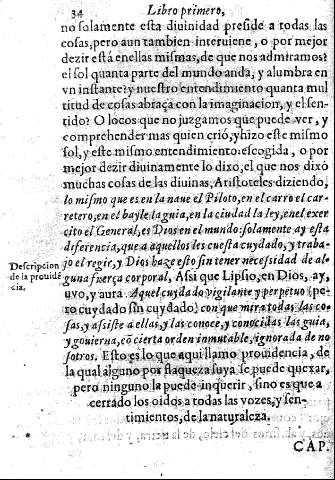 34 Libro primero,
no solamente esta diuinidad preside a todas las
cosas, pero aun tambien interuiene, o por mejor
dezir està enellas mismas, de que nos admiramos?
el sol quanta parte del mundo anda, y alumbra en
vn instante? y nuestro entendimiento quanta mul
titud de cosas abraça con la imaginacion, y el sen-
tido? O locos que no juzgamos que puede ver, y
comprehender mas quien criò, y hizo este mismo
sol, y este mismo entendimiento. escogida, o por
mejor dezir diuinamente lo dixo, el que nos dixò
muchas cosas de las diuinas, Aristoteles diziendo,
lo mismo que es en la naue el Piloto, en el carro el car-
retero, en el bayle la guia, en la ciudad la ley, en el exer
cito el General, es Dios en el mundo: solamente ay esta
diferencia, que a aquellos les cuesta cuydado, y traba-
jo el regir, y Dios haze esto sin tener necesidad de al-
guna fuerça corporal. Assi que Lipsio, en Dios, ay,
uvo, y aura Aquel cuydado vigilante y perpetuo (pe-
ro cuydado sin cuydado) con que mira todas las co-
sas, y assiste a ellas, y las conoce, y conocidas las guia,
y gouierna, cō cierta orden inmutable, ignorada de no
sotros. Esto es lo que aqui llamo prouidencia, de
la qual alguno por flaqueza suya se puede quexar,
pero ninguno la puede inquerir, sino es que a
cerrado los oidos a todas las vozes, y sen-
timientos, de la naturaleza.
Descripcion
de la prouidē
cia.
CAP.